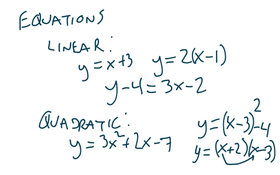 EQUATIONS
LINEAR:
y = x+3 y = 2(x-1)
y-4 = 3x-2
QUADRATIC:
y = (x-3)² - 4
y = 3x² + 2x - 7
y = (x+2)(x-3)